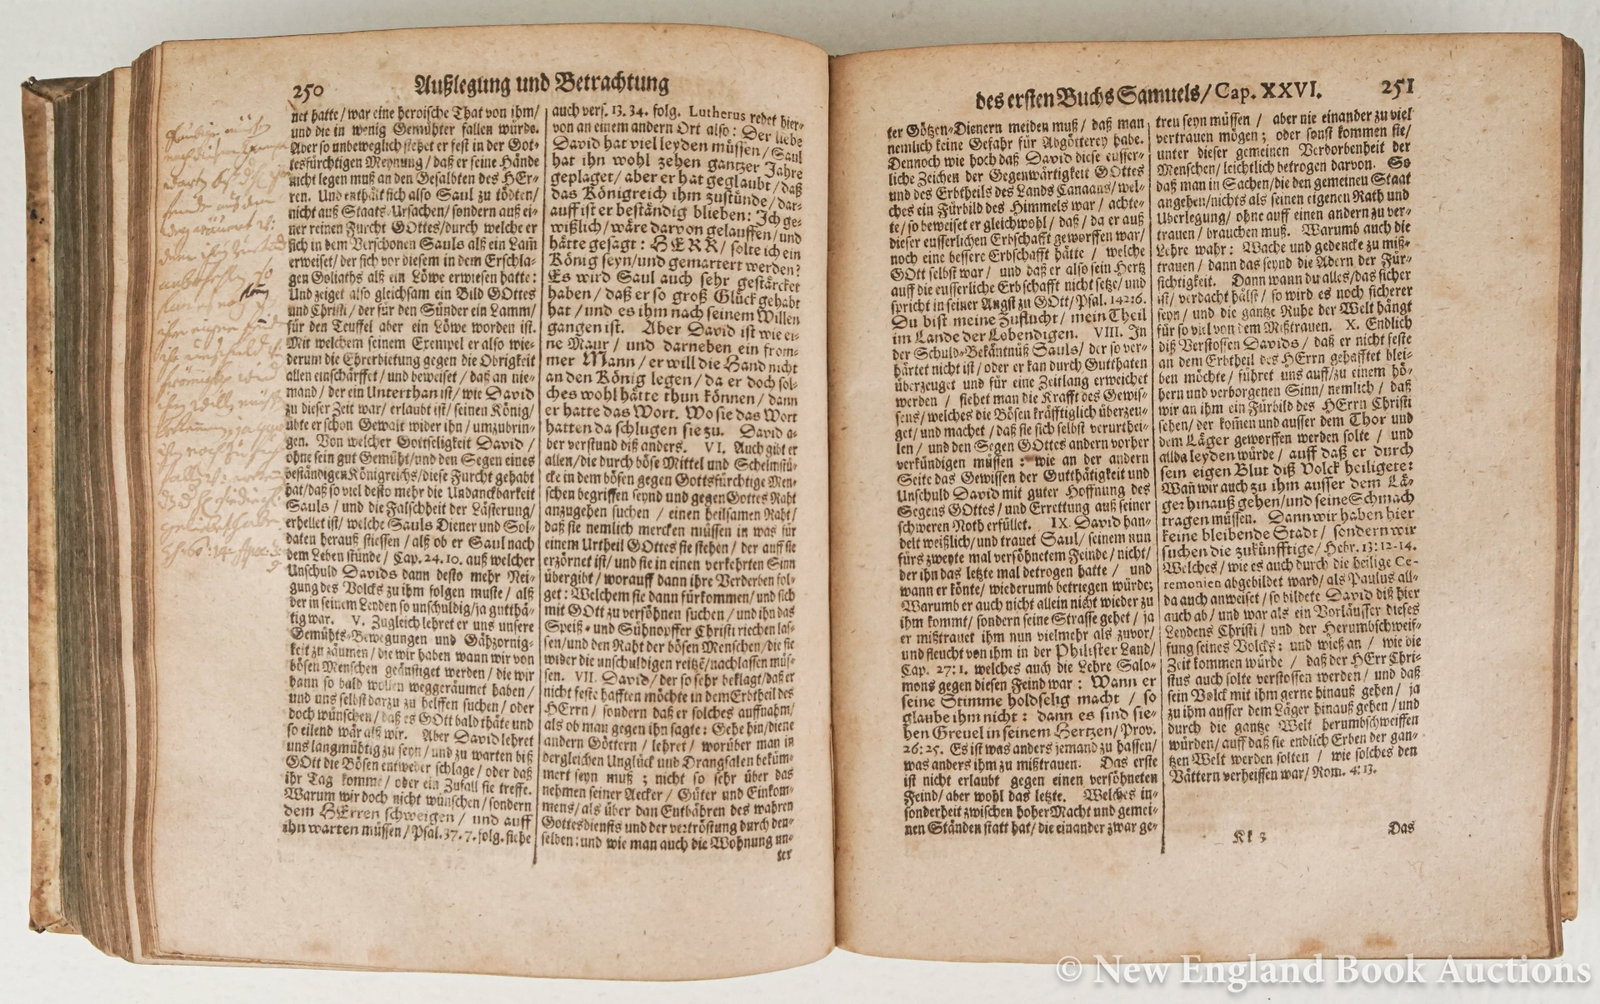 250
Außlegung und Betrachtung
net hatte / war eine heroische That von ihm /
und die in wenig Gemühter fallen würde.
Aber so unbeweglich stehet er fest in der Got-
tesfürchtigen Meynung / daß er seine Hände
nicht legen muß an den Gesalbten des HEr-
ren. Und enthält sich also Saul zu tödten /
nicht auß Staats-Ursachen / sondern auß ei-
ner reinen Furcht GOttes / durch welche er
sich in dem Verschonen Sauls alß ein Lam̃
erweiset / der sich vor diesem in dem Erschla-
gen Goliaths alß ein Löwe erwiesen hatte:
Und zeiget also gleichsam ein Bild GOttes
und Christi / der für den Sünder ein Lamm /
für den Teuffel aber ein Löwe worden ist.
Mit welchem seinem Exempel er also wie-
derum die Ehrerbietung gegen die Obrigkeit
allen einschärffet / und beweiset / daß an nie-
mand / der ein Unterthan ist / wie David
zu dieser Zeit war / erlaubt ist / seinen König /
übte er schon Gewalt wider ihn / umzubrin-
gen. Von welcher Gottseligkeit David /
ohne sein gut Gemüht / und den Segen eines
beständigen Königreichs / diese Furcht gehabt
hat / daß so viel desto mehr die Undanckbarkeit
Sauls / und die Falschheit der Lästerung /
erhellet ist / welche Sauls Diener und Sol-
daten herauß stiessen / alß ob er Saul nach
dem Leben stünde / Cap. 24. 10. auß welcher
Unschuld Davids dann desto mehr Nei-
gung des Volcks zu ihm folgen muste / alß
der in seinem Leyden so unschuldig / ja gutthä-
tig war. V. Zugleich lehret er uns unsere
Gemühts-Bewegungen und Gähzornig-
keit zu zäumen / die wir haben wann wir von
bösen Menschen geängstiget werden / die wir
dann so bald wollen weggeräumet haben /
und uns selbst darzu zu helffen suchen / oder
doch wünschen / daß es GOtt bald thäte und
so eilend wär alß wir. Aber David lehret
uns langmühtig zu seyn / und zu warten biß
GOtt die Bösen entweder schlage / oder daß
ihr Tag komme / oder ein Zufall sie treffe.
Warum wir doch nicht wünschen / sondern
dem HErren schweigen / und auff
ihn warten müssen / Psal. 37. 7. folg. siehe
auch vers. 13. 34. folg. Lutherus redet hier-
von an einem andern Ort also: Der liebe
David hat viel leyden müssen / Saul
hat ihn wohl zehen gantzer Jahre
geplaget / aber er hat geglaubt / daß
das Königreich ihm zustünde / dar-
auff ist er beständig blieben: Ich ge-
wißlich / wäre darvon gelauffen / und
hätte gesagt: HERR / solte ich ein
König seyn / und gemartert werden?
Es wird Saul auch sehr gestärcket
haben / daß er so groß Glück gehabt
hat / und es ihm nach seinem Willen
gangen ist. Aber David ist wie ei-
ne Maur / und darneben ein from-
mer Mann / er will die Hand nicht
an den König legen / da er doch sol-
ches wohl hätte thun können / dann
er hatte das Wort. Wo sie das Wort
hatten da schlugen sie zu. David a-
ber verstund diß anders. VI. Auch gibt er
allen / die durch böse Mittel und Schelmstü-
cke in dem bösen gegen Gottsfürchtige Men-
schen begriffen seynd und gegen Gottes Raht
anzugehen suchen / einen heilsamen Raht /
daß sie nemlich mercken müssen in was für
einem Urtheil GOttes sie stehen / der auff sie
erzörnet ist / und sie in einen verkehrten Sinn
übergibt / worauff dann ihre Verderben fol-
get: Welchem sie dann fürkommen / und sich
mit GOtt zu versöhnen suchen / und ihn das
Speiß- und Sühnopffer Christi riechen las-
sen / und den Raht der bösen Menschen / die sie
wider die unschuldigen reitzẽ / nachlassen müs-
sen. VII. David / der so sehr beklagt / daß er
nicht feste hafften möchte in dem Erbtheil des
HErrn / sondern daß er solches auffnahm /
als ob man gegen ihn sagte: Gehe hin / diene
andern Göttern / lehret / worüber man in
dergleichen Unglück und Drangsalen beküm-
mert seyn muß; nicht so sehr über das
nehmen seiner Aecker / Güter und Einkom-
mens / als über dan Entbähren des wahren
Gottesdiensts und der vertröstung durch den-
selben: und wie man auch die Wohnung un-
ter
des ersten Buchs Samuels / Cap. XXVI.
251
ter Götzen-Dienern meiden muß / daß man
nemlich keine Gefahr für Abgötterey habe.
Dennoch wie hoch daß David diese eusser-
liche Zeichen der Gegenwärtigkeit GOttes
und des Erbtheils des Lands Canaans / wel-
ches ein Fürbild des Himmels war / achte-
te / so beweiset er gleichwohl / daß / da er auß
dieser eusserlichen Erbschafft geworffen war /
noch eine bessere Erbschafft hätte / welche
GOtt selbst war / und daß er also sein Hertz
auff die eusserliche Erbschafft nicht setze / und
spricht in seiner Angst zu GOtt / Psal. 142: 6.
Du bist meine Zuflucht / mein Theil
im Lande der Lebendigen. VIII. In
der Schuld-Bekäntnüß Sauls / der so ver-
härtet nicht ist / oder er kan durch Gutthaten
überzeuget und für eine Zeitlang erweichet
werden / siehet man die Krafft des Gewis-
sens / welches die Bösen kräfftiglich überzeu-
get / und machet / daß sie sich selbst verurthei-
len / und den Segen GOttes andern vorher
verkündigen müssen: wie an der andern
Seite das Gewissen der Gutthätigkeit und
Unschuld David mit guter Hoffnung des
Segens GOttes / und Errettung auß seiner
schweren Noth erfüllet. IX. David han-
delt weißlich / und trauet Saul / seinem nun
fürs zweyte mal versöhnetem Feinde / nicht /
der ihn das letzte mal betrogen hatte / und
wann er könte / wiederumb betriegen würde;
Warumb er auch nicht allein nicht wieder zu
ihm kommt / sondern seine Strasse gehet / ja
er mißtrauet ihm nun vielmehr als zuvor /
und fleucht von ihm in der Philister Land /
Cap. 27: 1. welches auch die Lehre Salo-
mons gegen diesen Feind war: Wann er
seine Stimme holdselig macht / so
glaube ihm nicht: dann es sind sie-
ben Greuel in seinem Hertzen / Prov.
26: 25. Es ist was anders jemand zu hassen /
was anders ihm zu mißtrauen. Das erste
ist nicht erlaubt gegen einen versöhneten
Feind / aber wohl das letzte. Welches in-
sonderheit zwischen hoher Macht und gemei-
nen Ständen statt hat / die einander zwar ge-
treu seyn müssen / aber nie einander zu viel
vertrauen mögen; oder sonst kommen sie /
unter dieser gemeinen Verdorbenheit der
Menschen / leichtlich betrogen darvon. So
daß man in Sachen / die den gemeinen Staat
angehen / nichts als seinen eigenen Rath und
Uberlegung / ohne auff einen andern zu ver-
trauen / brauchen muß. Warumb auch die
Lehre wahr: Wache und gedencke zu miß-
trauen / dann das seynd die Adern der Für-
sichtigkeit. Dann wann du alles / das sicher
ist / verdacht hälst / so wird es noch sicherer
seyn / und die gantze Ruhe der Welt hängt
für so viel von dem Mißtrauen. X. Endlich
diß Verstossen Davids / daß er nicht feste
an dem Erbtheil des HErrn gehafftet blei-
ben möchte / führet uns auff / zu einem hö-
hern und verborgenen Sinn / nemlich / daß
wir an ihm ein Fürbild des HErrn Christi
sehen / der kom̃en und ausser dem Thor und
dem Läger geworffen werden solte / und
allda leyden würde / auff daß er durch
sein eigen Blut diß Volck heiligete:
Wañ wir auch zu ihm ausser dem Lä-
ger hinauß gehen / und seine Schmach
tragen müssen. Dann wir haben hier
keine bleibende Stadt / sondern wir
suchen die zukünfftige / Hebr. 13: 12-14.
Welches / wie es auch durch die heilige Ce-
remonien abgebildet ward / als Paulus all-
da auch anweiset / so bildete David diß hier
auch ab / und war als ein Vorläuffer dieses
Leydens Christi / und der Herumbschweif-
fung seines Volcks: und wieß an / wie die
Zeit kommen würde / daß der HErr Chri-
stus auch solte verstossen werden / und daß
sein Volck mit ihm gerne hinauß gehen / ja
zu ihm ausser dem Läger hinauß gehen / und
durch die gantze Welt herumbschweiffen
würden / auff daß sie endlich Erben der gan-
tzen Welt werden solten / wie solches den
Vättern verheissen war / Rom. 4: 13.
Kk 3
Das
© New England Book Auctions